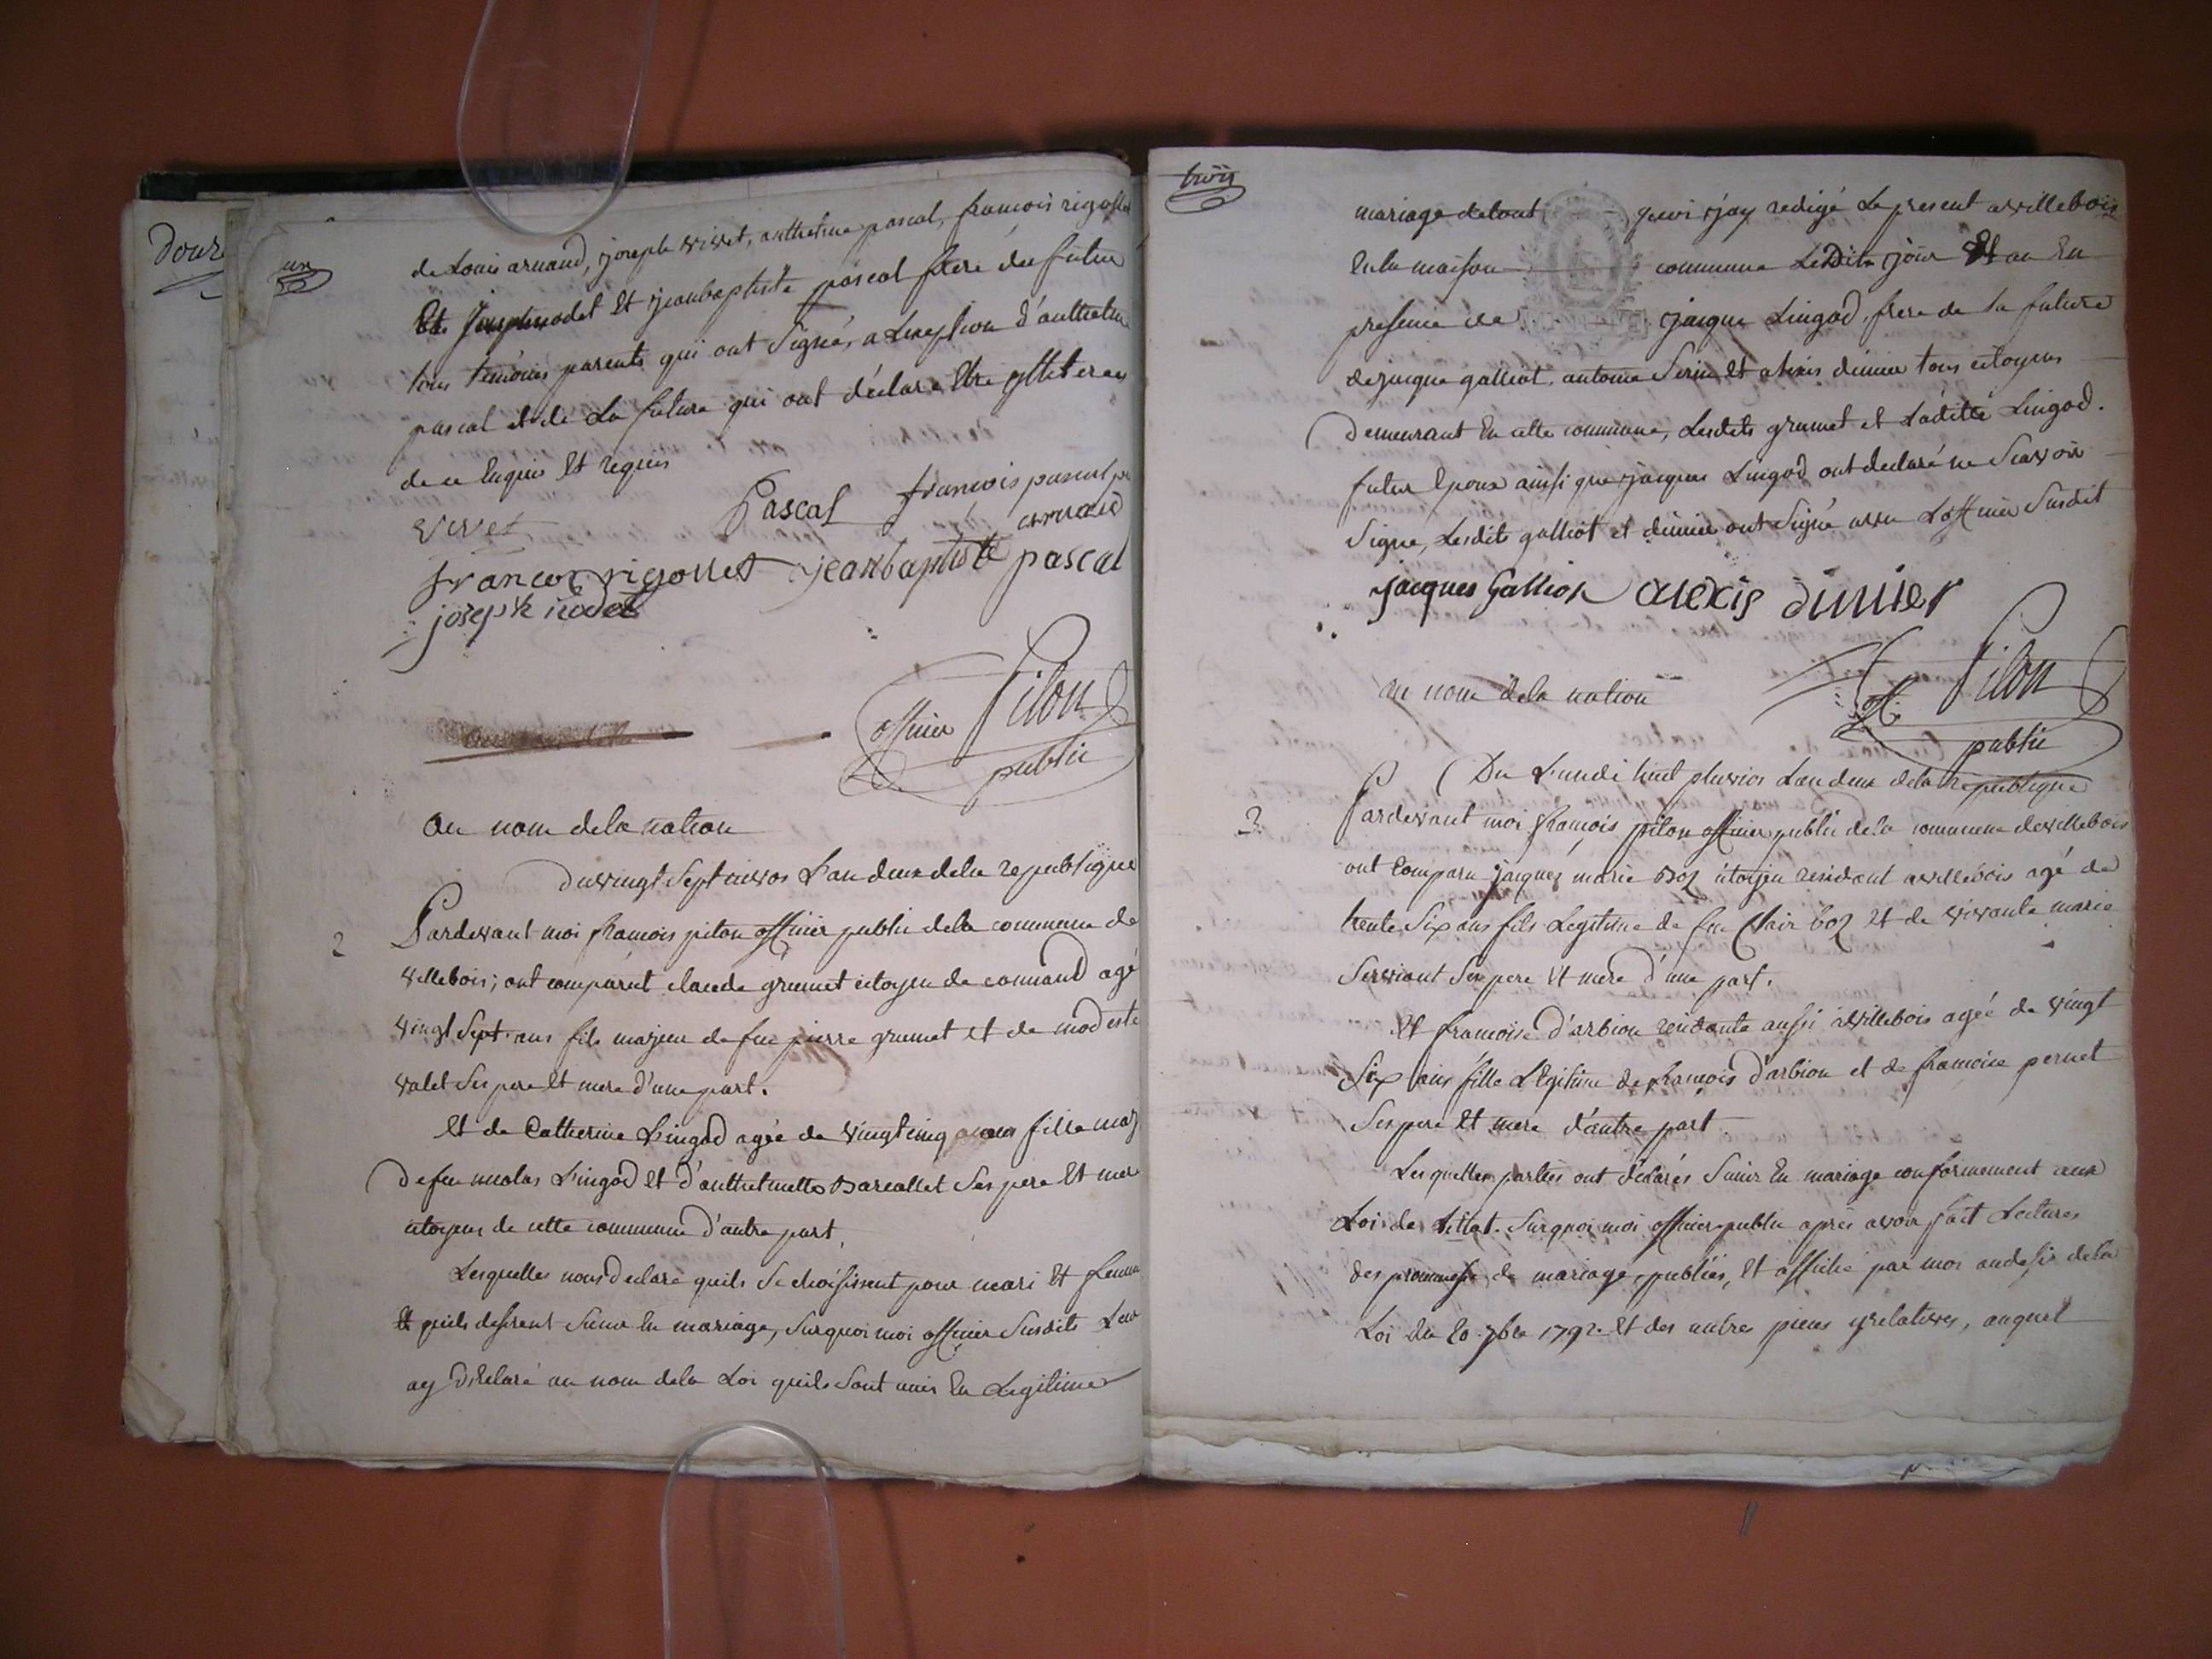 Douze
un
de Louis arnaud, joseph vivet, anthelme pascal, françois rigollet
Et joseph nodet Et jeanbaptiste pascal frere du futur
tous temoins parents qui ont Signé, a L'exeption d'anthelme
pascal et de La future qui ont déclaré Etre illiteres
de ce Enquis Et requis
vivet Pascal françois pascal
arnaud
françois rigollet jeanbaptiste pascal
joseph nodet
pilon
officier
public
au nom dela nation
du vingt Sept nivos L'an deux dela republique
2
Pardevant moi françois pilon officier public dela commune de
villebois; ont comparut claude grumet citoyen de connand agé
vingt Sept ans fils majeur de feu pierre grumet et de modeste
valet Ses pere Et mere d'une part.
Et de Catherine Lingod agée de vingt cinq ans fille maj
de feu nicolas Lingod Et d'anthelmette Barcollet Ses pere Et mere
citoyens de cette commune d'autre part,
Lesquelles nous declaré quils Se choisissent pour mari Et femme
Et quils desirent Sunir En mariage, Surquoi moi officier Susdits Leur
ay Déclaré au nom dela Loi quils Sont unis En Legitime
trois
mariage de tout quoi j'ay redigé Le present a villebois
En la maison commune Ledit jour Et an En
presence de jacque Lingod, frere de la future
de jacque galliot, antoine Serin Et alexis dimier tous citoyens
Demeurant En cette commune, Lesdits grumet et Laditte Lingod.
futur Epoux ainsi que jacques Lingod ont declaré ne Scavoir
Signer, Lesdits galliot et dimier ont Signé avec L'officier Susdit
jacques Galliot alexis dimier
pilon
off.
public
au nom dela nation
Du Lundi huit pluvios L'an deux dela republique
3
Pardevant moi françois pilon officier public dela commune devillebois
ont comparu jacques marie Boz citoyen residant a villebois agé de
trente Six ans fils Legitime de feu Clair boz et de vivante marie
Serviant Ses pere Et mere d'une part.
Et françoise d'arbion residante aussi a villebois agée de vingt
Six ans fille Legitime de françois d'arbion et de françoise pernet
Ses pere Et mere d'autre part
Lesquelles parties ont déclarés Sunir En mariage conformement aux
Loi de L'etat. Surquoi moi officier public après avoir fait Lectures
des promesse de mariage, publiés, Et affiché par moi au desir dela
Loi du 20 7bre 1792 Et des autres pieces y relatives, auquel